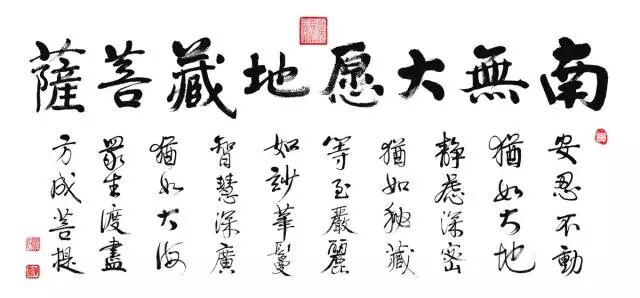 南無大愿地藏菩薩
安忍不動
猶如大地
静慮深密
猶如秘藏
等至嚴麗
如妙華鬘
智慧深廣
猶如大海
眾生渡盡
方成菩提